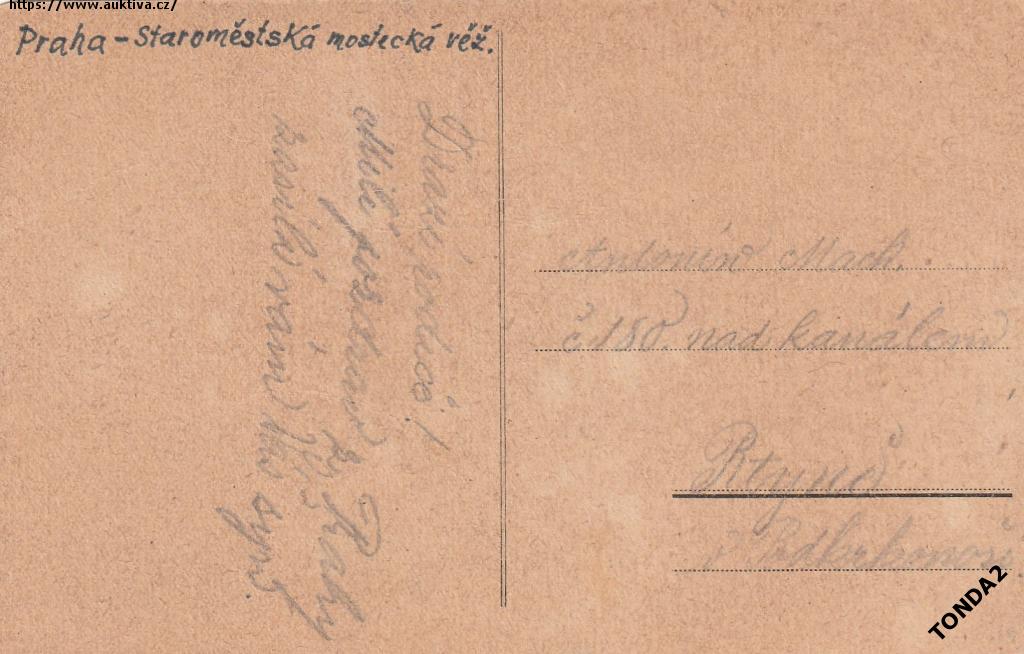 https://www.auktiva.cz/
Praha - Staroměstská mostecká věž.
Drazí rodiče!
Milé pozdravy z Prahy
zasílá vám Váš syn
Antonín Mach.
č. 180. nad kanálem
Rtyně
v Podkrkonoší
TONDA2